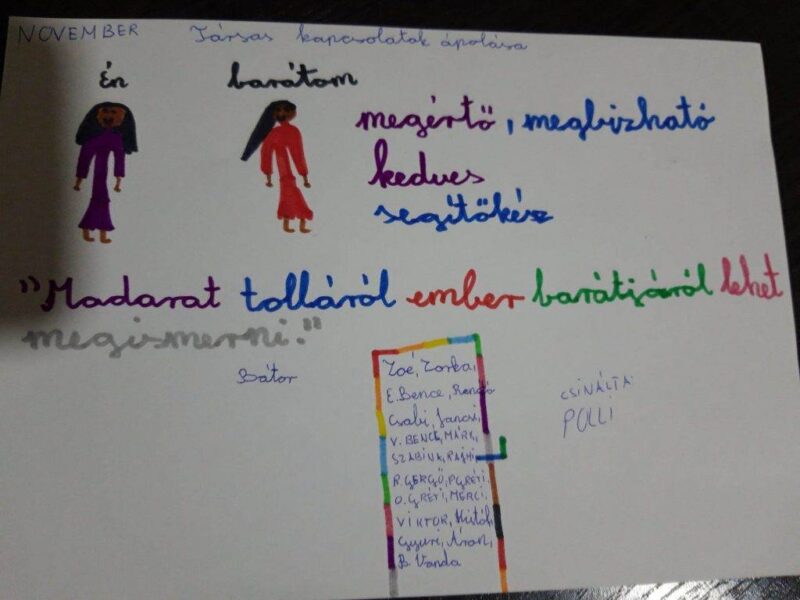 NOVEMBER Társas kapcsolatok ápolása
én barátom
megértő, megbízható
kedves
segítőkész
"Madarat tolláról ember barátjáról lehet
megismerni."
Bátor
Zoé, Zorka,
E. Bence,
Csabi, Jancsi,
V. BENCE, MÁRK,
SZABINA, RAJMI
R. GERGŐ, P. GRÉTI,
O. GRÉTI, MERCI,
VIKTOR,
Gyuri, Áron,
B. Vanda
CSINÁLTA:
POLLI